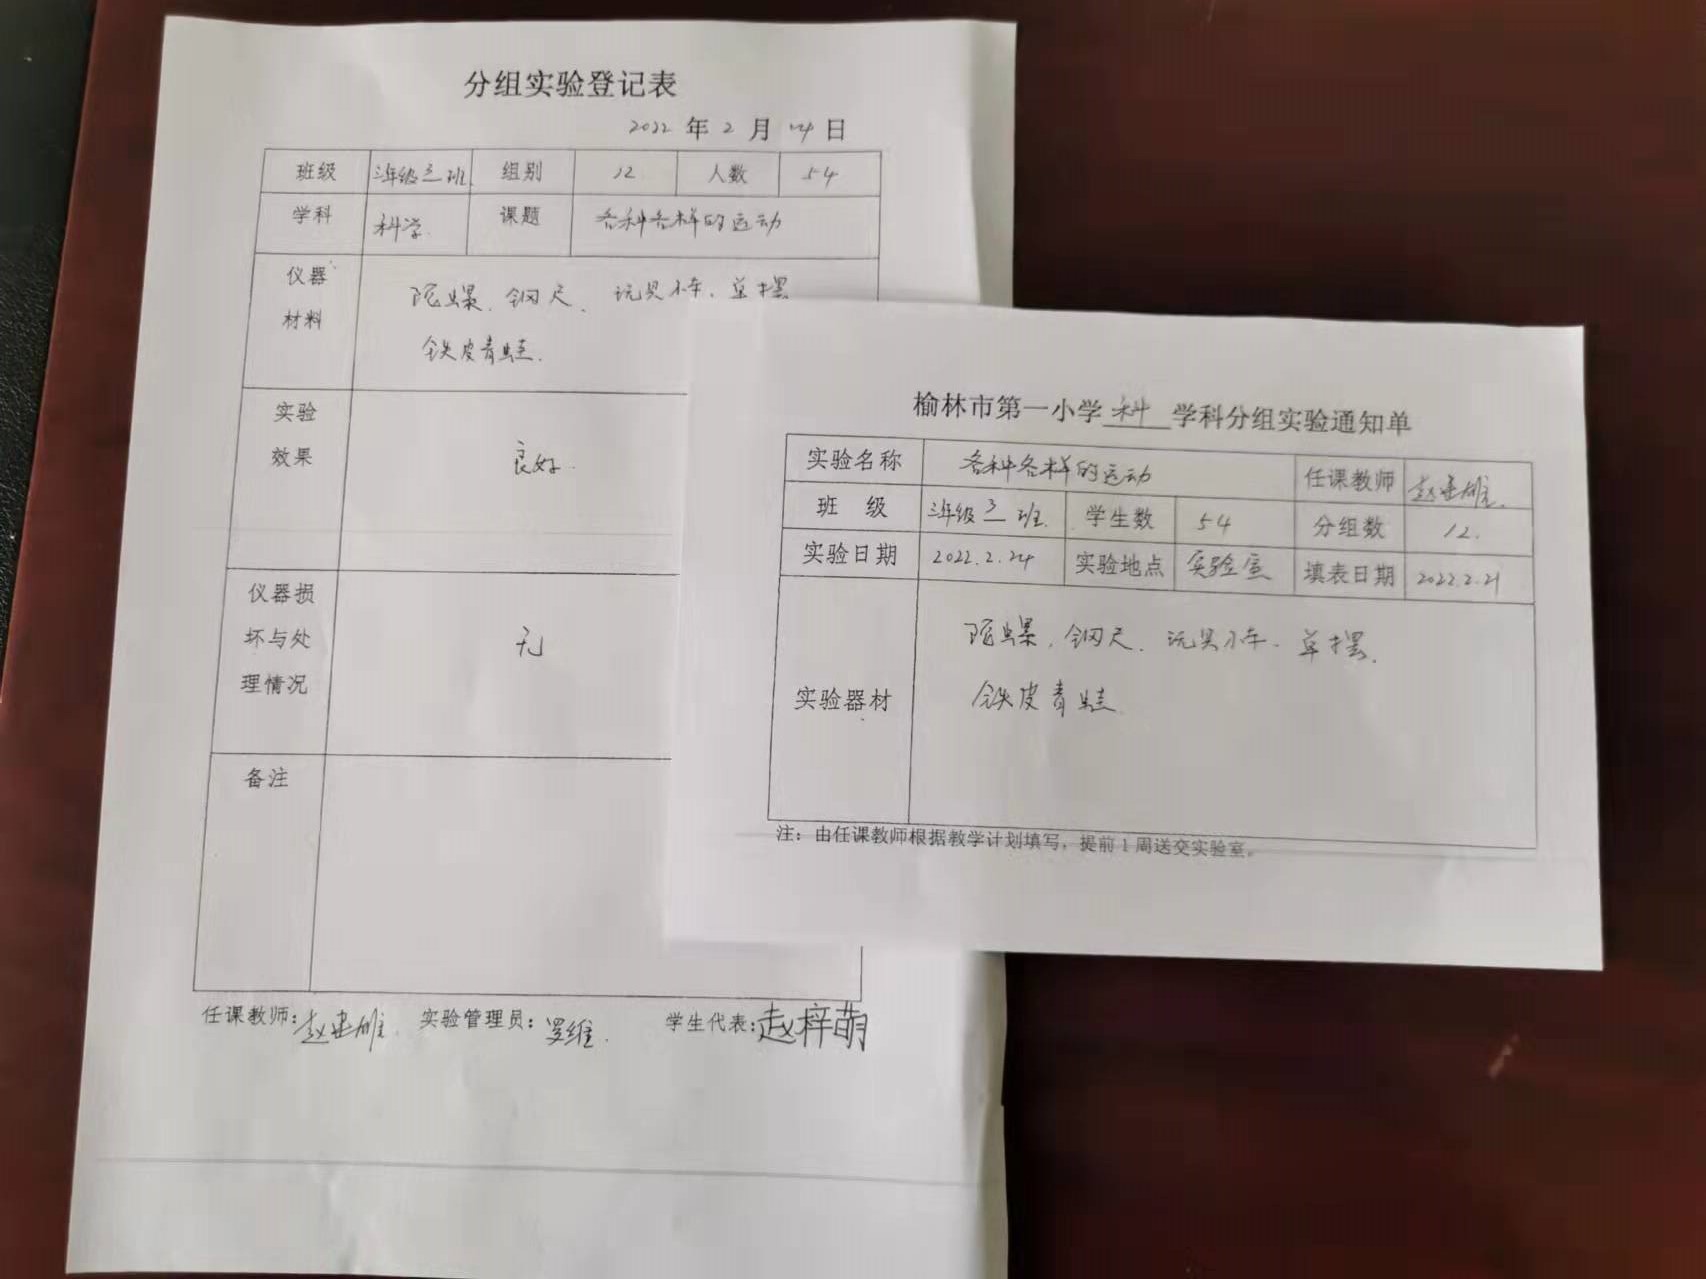 分组实验登记表
2022 年 2 月 24 日
班级 三年级三班 组别 12 人数 54
学科 科学 课题 各种各样的运动
仪器材料 陀螺、钢尺、玩具小车、单摆
铁皮青蛙.
实验效果 良好.
仪器损坏与处理情况 无
备注
任课教师:赵建雄 实验管理员:罗维. 学生代表:赵梓萌
榆林市第一小学 科 学科分组实验通知单
实验名称 各种各样的运动 任课教师 赵建雄
班 级 三年级 3 班 学生数 54 分组数 12.
实验日期 2022.2.24 实验地点 实验室 填表日期 2022.2.21
实验器材 陀螺、钢尺、玩具小车、单摆、
铁皮青蛙
注：由任课教师根据教学计划填写，提前 1 周送交实验室。